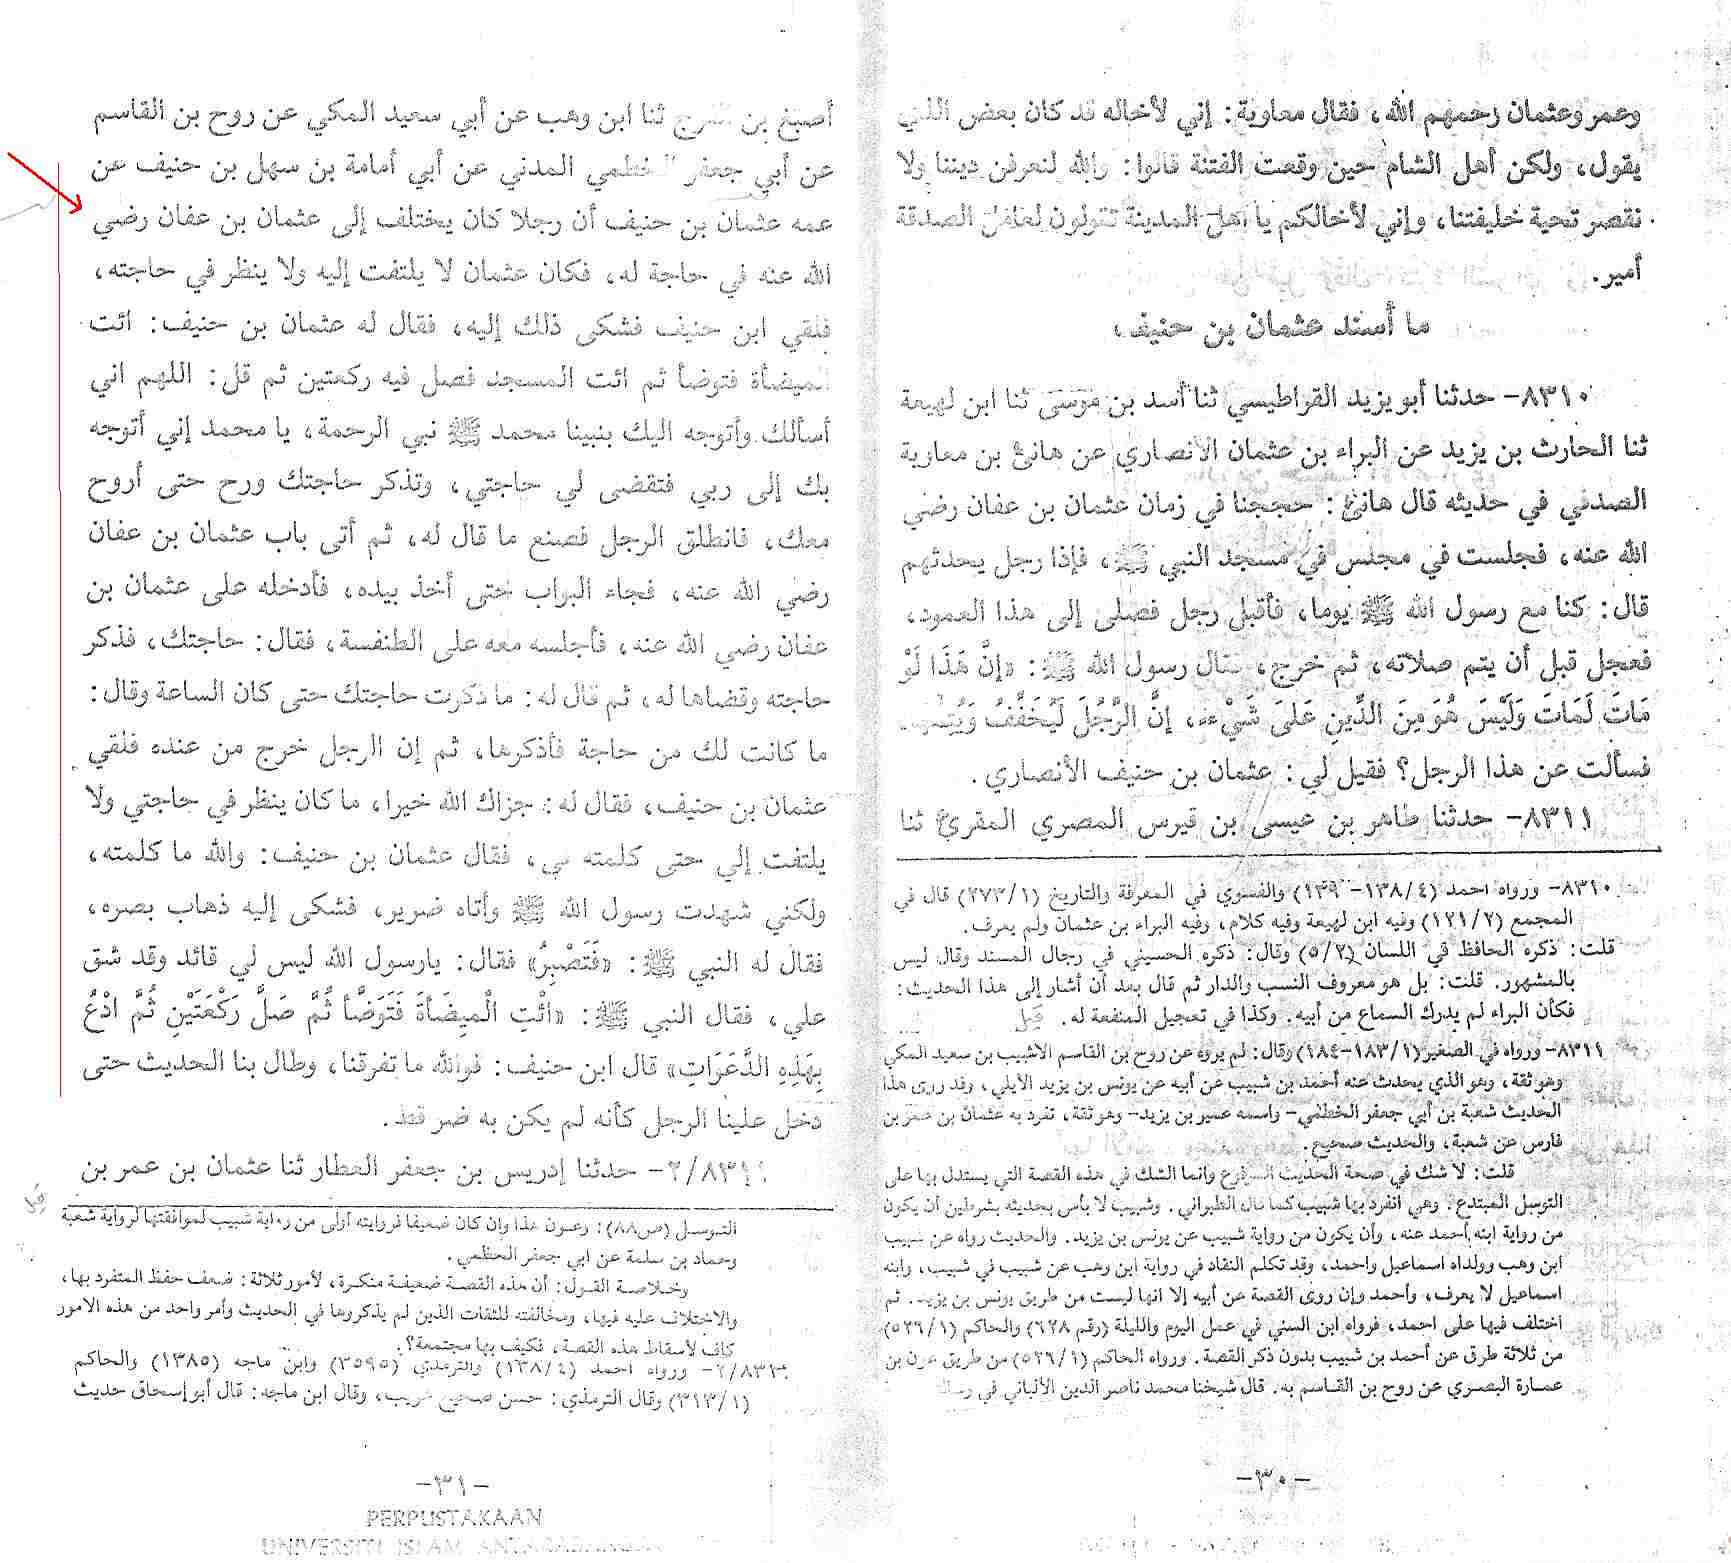 وعمر وعثمان رحمهم الله، فقال معاوية: إني لأخاله قد كان بعض الذي
يقول، ولكن أهل الشام حين وقعت الفتنة قالوا: والله لنعرفن ديننا ولا
نقصر تحية خليفتنا، وإني لأخالكم يا أهل المدينة تقولون لعامل الصدقة
أمير.
ما أسند عثمان بن حنيف
٨٣١٠- حدثنا أبو يزيد القراطيسي ثنا أسد بن موسى ثنا ابن لهيعة
ثنا الحارث بن يزيد عن البراء بن عثمان الأنصاري عن هانئ بن معاوية
الصدفي في حديثه قال هانئ: حججنا في زمان عثمان بن عفان رضي
الله عنه، فجلست في مجلس في مسجد النبي ﷺ، فإذا رجل يحدثهم
قال: كنا مع رسول الله ﷺ يوما، فأقبل رجل فصلى إلى هذا العمود،
فعجل قبل أن يتم صلاته، ثم خرج، فقال رسول الله ﷺ: «إِنَّ هَذَا لَوْ
مَاتَ لَمَاتَ وَلَيْسَ هُوَ مِنَ الدِّينِ عَلىَ شَيْءٍ، إِنَّ الرَّجُلَ لَيُخَفِّفُ وَيُتِمُّهَا».
فسألت عن هذا الرجل؟ فقيل لي: عثمان بن حنيف الأنصاري.
٨٣١١- حدثنا طاهر بن عيسى بن قيرس المصري المقرئ ثنا
٨٣١٠- ورواه احمد (٤/١٣٨-١٣٩) والفسوي في المعرفة والتاريخ (١/٢٧٣) قال في
المجمع (٢/١٢١) وفيه ابن لهيعة وفيه كلام، وفيه البراء بن عثمان ولم يعرف.
قلت: ذكره الحافظ في اللسان (٢/٥) وقال: ذكره الحسيني في رجال المسند وقال ليس
بالمشهور. قلت: بل هو معروف النسب والدار ثم قال بعد أن أشار إلى هذا الحديث:
فكأن البراء لم يدرك السماع من أبيه. وكذا في تعجيل المنفعة له.
٨٣١١- ورواه في الصغير (١/١٨٣-١٨٤) وقال: لم يروه عن روح بن القاسم الا شبيب بن سعيد المكي
وهو ثقة، وهو الذي يحدث عنه أحمد بن شبيب عن أبيه عن يونس بن يزيد الأيلي، وقد روى هذا
الحديث شعبة بن أبي جعفر الخطمي- واسمه عمير بن يزيد- وهو ثقة، تفرد به عثمان بن عمر بن
فارس عن شعبة، والحديث صحيح.
قلت: لا شك في صحة الحديث المرفوع وانما الشك في هذه القصة التي يستدل بها على
التوسل المبتدع. وهي انفرد بها شبيب كما قال الطبراني. وشبيب لا بأس بحديثه بشرطين أن يكون
من رواية ابنه أحمد عنه، وأن يكون من رواية شبيب عن يونس بن يزيد. والحديث رواه عن شبيب
ابن وهب وولداه اسماعيل واحمد، وقد تكلم النقاد في رواية ابن وهب عن شبيب في شبيب، وابنه
اسماعيل لا يعرف، وأحمد وإن روى القصة عن أبيه إلا انها ليست من طريق يونس بن يزيد. ثم
اختلف فيها على احمد، فرواه ابن السني في عمل اليوم والليلة (رقم ٦٢٨) والحاكم (١/٥٢٦)
من ثلاثة طرق عن أحمد بن شبيب بدون ذكر القصة. ورواه الحاكم (١/٥٢٦) من طريق عون بن
عمارة البصري عن روح بن القاسم به. قال شيخنا محمد ناصر الدين الألباني في
-٣٠-
أصبغ بن الفرج ثنا ابن وهب عن أبي سعيد المكي عن روح بن القاسم
عن أبي جعفر الخطمي المدني عن أبي أمامة بن سهل بن حنيف عن
عمه عثمان بن حنيف أن رجلا كان يختلف إلى عثمان بن عفان رضي
الله عنه في حاجة له، فكان عثمان لا يلتفت إليه ولا ينظر في حاجته،
فلقي ابن حنيف فشكى ذلك إليه، فقال له عثمان بن حنيف: ائت
الميضأة فتوضأ ثم ائت المسجد فصل فيه ركعتين ثم قل: اللهم اني
أسألك وأتوجه اليك بنبينا محمد ﷺ نبي الرحمة، يا محمد إني أتوجه
بك إلى ربي فتقضى لي حاجتي، وتذكر حاجتك ورح حتى أروح
معك، فانطلق الرجل فصنع ما قال له، ثم أتى باب عثمان بن عفان
رضي الله عنه، فجاء البواب حتى أخذ بيده، فأدخله على عثمان بن
عفان رضي الله عنه، فأجلسه معه على الطنفسة، فقال: حاجتك، فذكر
حاجته وقضاها له، ثم قال له: ما ذكرت حاجتك حتى كان الساعة وقال:
ما كانت لك من حاجة فأذكرها، ثم إن الرجل خرج من عنده فلقي
عثمان بن حنيف، فقال له: جزاك الله خيرا، ما كان ينظر في حاجتي ولا
يلتفت إلي حتى كلمته في، فقال عثمان بن حنيف: والله ما كلمته،
ولكني شهدت رسول الله ﷺ وأتاه ضرير، فشكى إليه ذهاب بصره،
فقال له النبي ﷺ: «فَتَصْبِرُ» فقال: يارسول الله ليس لي قائد وقد شق
علي، فقال النبي ﷺ: «ائْتِ الْمِيضَأَةَ فَتَوَضَّأ ثُمَّ صَلِّ رَكْعَتَيْنِ ثُمَّ ادْعُ
بِهَذِهِ الدَّعَوَاتِ» قال ابن حنيف: فوالله ما تفرقنا، وطال بنا الحديث حتى
دخل علينا الرجل كأنه لم يكن به ضر قط.
٢/٨٣١١- حدثنا إدريس بن جعفر العطار ثنا عثمان بن عمر بن
التوسل (ص٨٨): وعون هذا وإن كان ضعيفا فروايته أولى من رواية شبيب لموافقتها لرواية شعبة
وحماد بن سلمة عن ابي جعفر الخطمي.
وخلاصة القول: أن هذه القصة ضعيفة منكرة، لأمور ثلاثة: ضعف حفظ المتفرد بها،
والاختلاف عليه فيها، ومخالفته للثقات الذين لم يذكروها في الحديث وأمر واحد من هذه الامور
كاف لأسقاط هذه القصة، فكيف بها مجتمعة؟.
٢/٨٣١١- ورواه احمد (٤/١٣٨) والترمذي (٣٥٩٥) وابن ماجه (١٣٨٥) والحاكم
(١/٣١٣) وقال الترمذي: حسن صحيح غريب، وقال ابن ماجه: قال أبو إسحاق حديث
-٣١-
PERPUSTAKAAN
UNIVERSITI ISLAM ANTARABANGSA